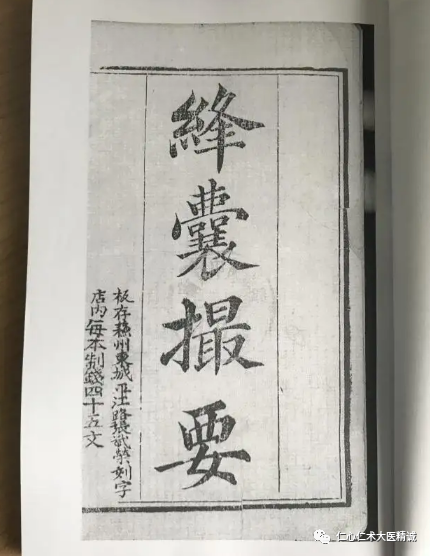 絳囊撮要
板存蘇州東城平江路張斌榮刻字
店内每本制錢四十五文
仁心仁术大医精诚